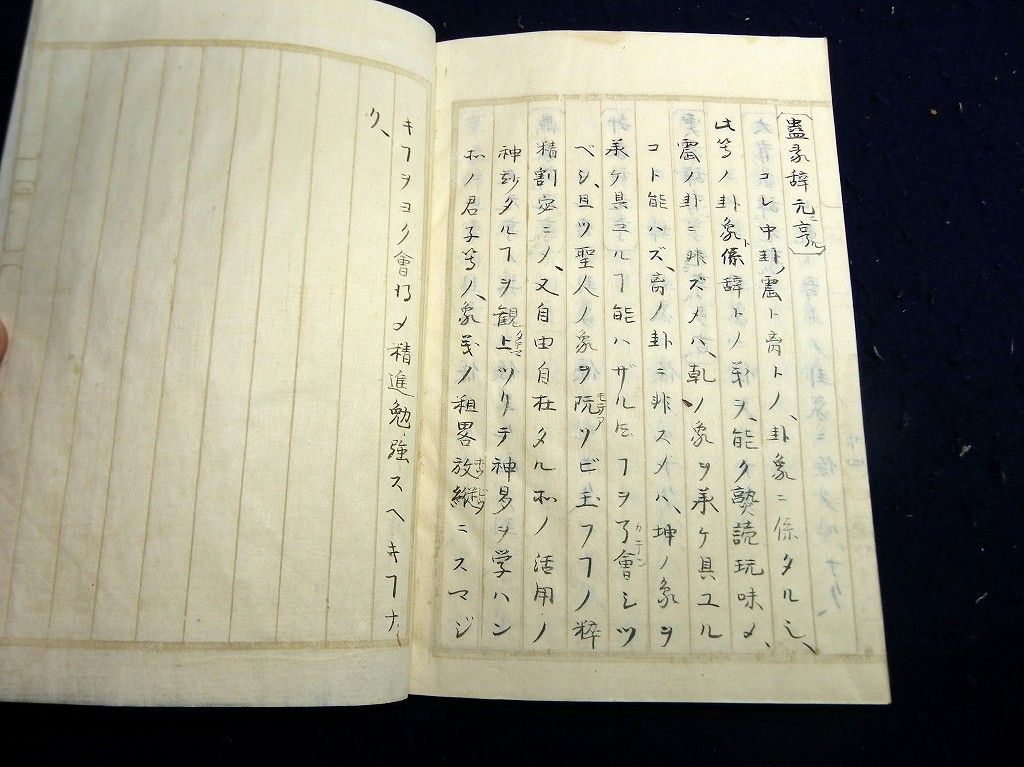 蠱彖辞元亨
コレ中卦震ト离トノ、卦象ニ係タル也、
此等ノ卦象ト係辞トノ義ヲ、能ク熟読玩味メ、
震ノ卦ニ非ズメハ、乾ノ象ヲ承ケ具ユル
コト能ハズ、离ノ卦ニ非スメハ、坤ノ象ヲ
承ケ具ユルヿ能ハザルヿヲ了會シツ
ベシ、且ツ聖人ノ象ヲ玩ソビ玉フヿノ粋
精割密ニメ、又自由自在タル所ノ活用ノ
神玅タルヿヲ観上ツリテ神易ヲ学ハン
所ノ君子等ノ、象義ノ粗畧放縦ニスマジ
キヿヲヨク會得メ精進勉強スヘキヿナ
リ、